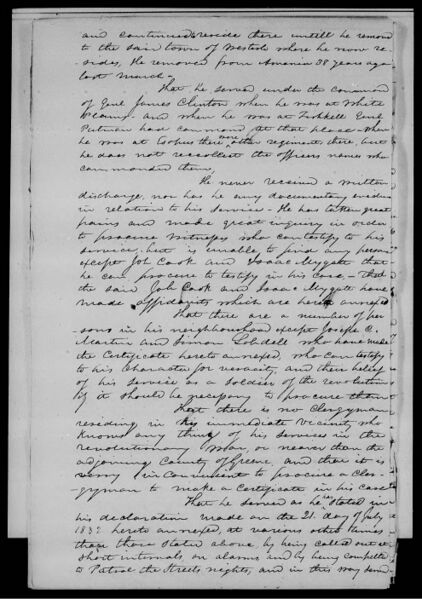 and continued to reside there untill he removed
to the said town of Westerlo where he now re-
sides, He removed from Amenia 38 years ago
last March.
That he served under the command
of Genl James Clinton when he was at White
Plains. and when he was at Fishkill Genl
Putnam had command at that place. when
he was at Esopus there were other regiment there, but
he does not recollect the officers names who
commanded them,
He never received a written
discharge, nor has he any documentary evidence
in relation to his service. He has taken great
pains and made great inquiry in order
to procure witnesses who can testify to his
service, but is unable to find any person
except Job Cook and Isaac Mygatt that
he can procure to testify in his case. That
the said Job Cook and Isaac Mygatt have
made affidavits which are hereto annexed
That there are a number of per
sons in his neighbourhood except Joseph C.
Martin and Simon Lobdell who have made
the Certificate hereto annexed, who can testify
to his character for veracity, and their belief
of his service as a soldier of the revolution
if it should be necessary to procure them
That there is no Clergyman
residing in his immediate vicinity who
knows any thing of his services in the
revolutionary War, or nearer than the
adjoining County of Greene, and that it is
very inconvenient to procure a Cler-
gyman to make a Certificate in his case
That he served as he has stated in
his declaration made on the 21. day of July
1832 hereto annexed, at various other times
than those stated above, by being called out at
short intervals, on alarms and by being compelled
to Patrol the Streets, nights, and in this way served